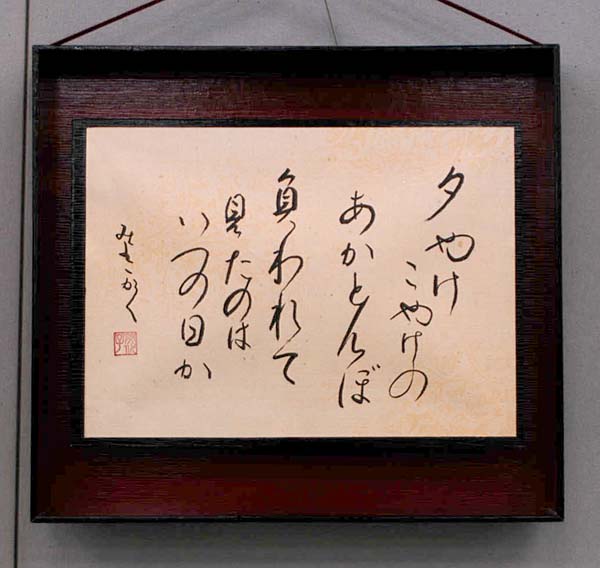 夕やけ
こやけの
あかとんぼ
負われて
見たのは
いつの日か
みきかく